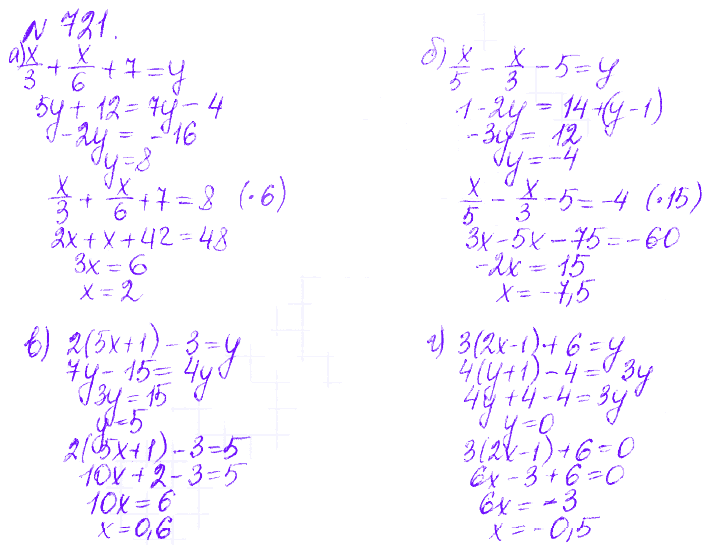 N 721.
а) x/3 + x/6 + 7 = y
5y + 12 = 7y - 4
-2y = -16
y = 8
x/3 + x/6 + 7 = 8 (·6)
2x + x + 42 = 48
3x = 6
x = 2
б) x/5 - x/3 - 5 = y
1 - 2y = 14 + (y - 1)
-3y = 12
y = -4
x/5 - x/3 - 5 = -4 (·15)
3x - 5x - 75 = -60
-2x = 15
x = -7,5
в) 2(5x+1) - 3 = y
7y - 15 = 4y
3y = 15
y = 5
2(5x+1) - 3 = 5
10x + 2 - 3 = 5
10x = 6
x = 0,6
г) 3(2x-1) + 6 = y
4(y+1) - 4 = 3y
4y + 4 - 4 = 3y
y = 0
3(2x-1) + 6 = 0
6x - 3 + 6 = 0
6x = -3
x = -0,5